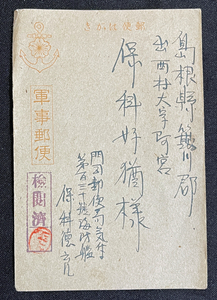 きがは便郵
島根縣簸川郡
出西村大字阿宮
保科好猶様
門司郵便局気付
第百三十号海防艦
保科徳
軍事郵便
検閲済